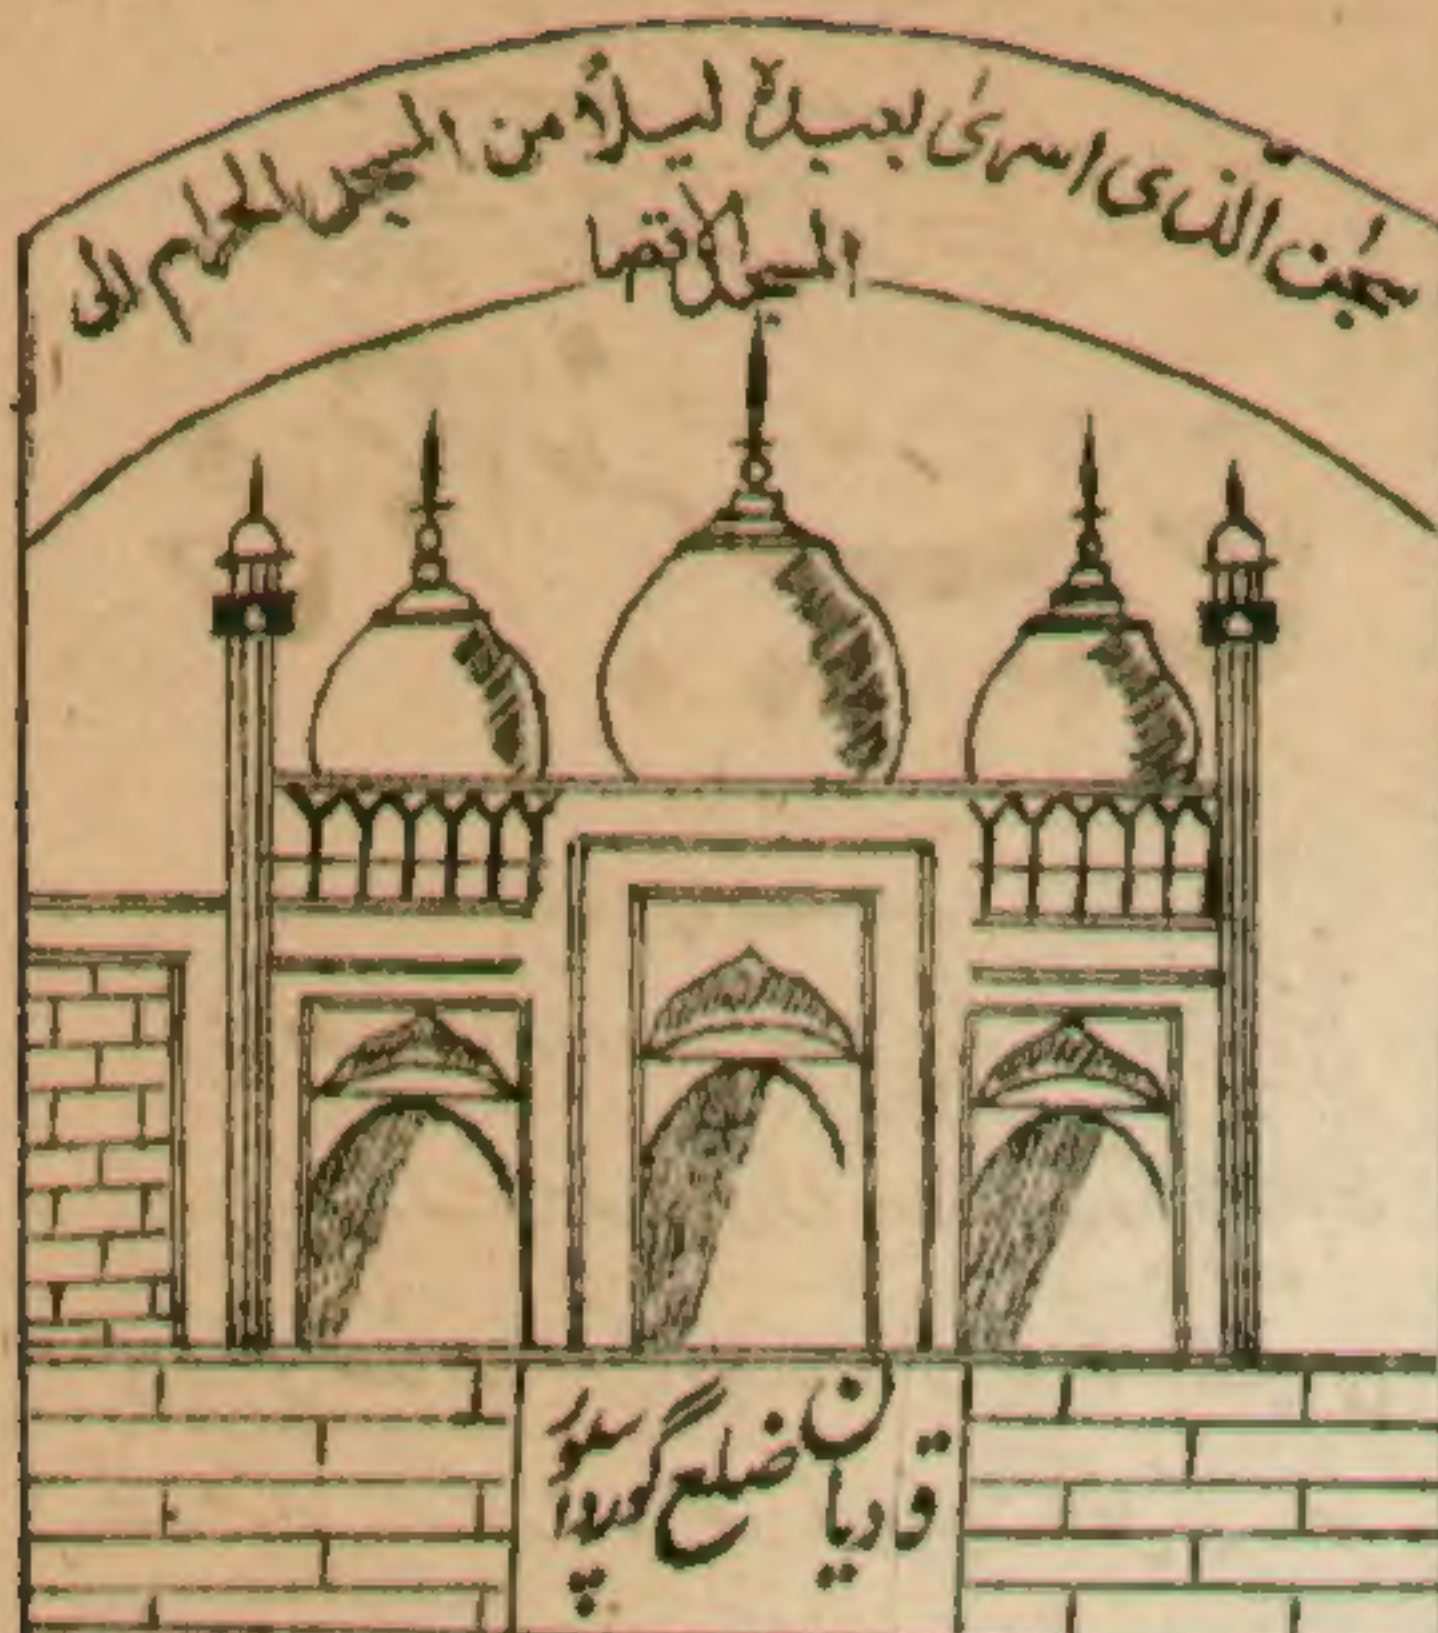 سبحٰن الذی اسریٰ بعبدہ لیلاً من المسجد الحرام الی
المسجد الاقصا
قادیان ضلع گورداسپور